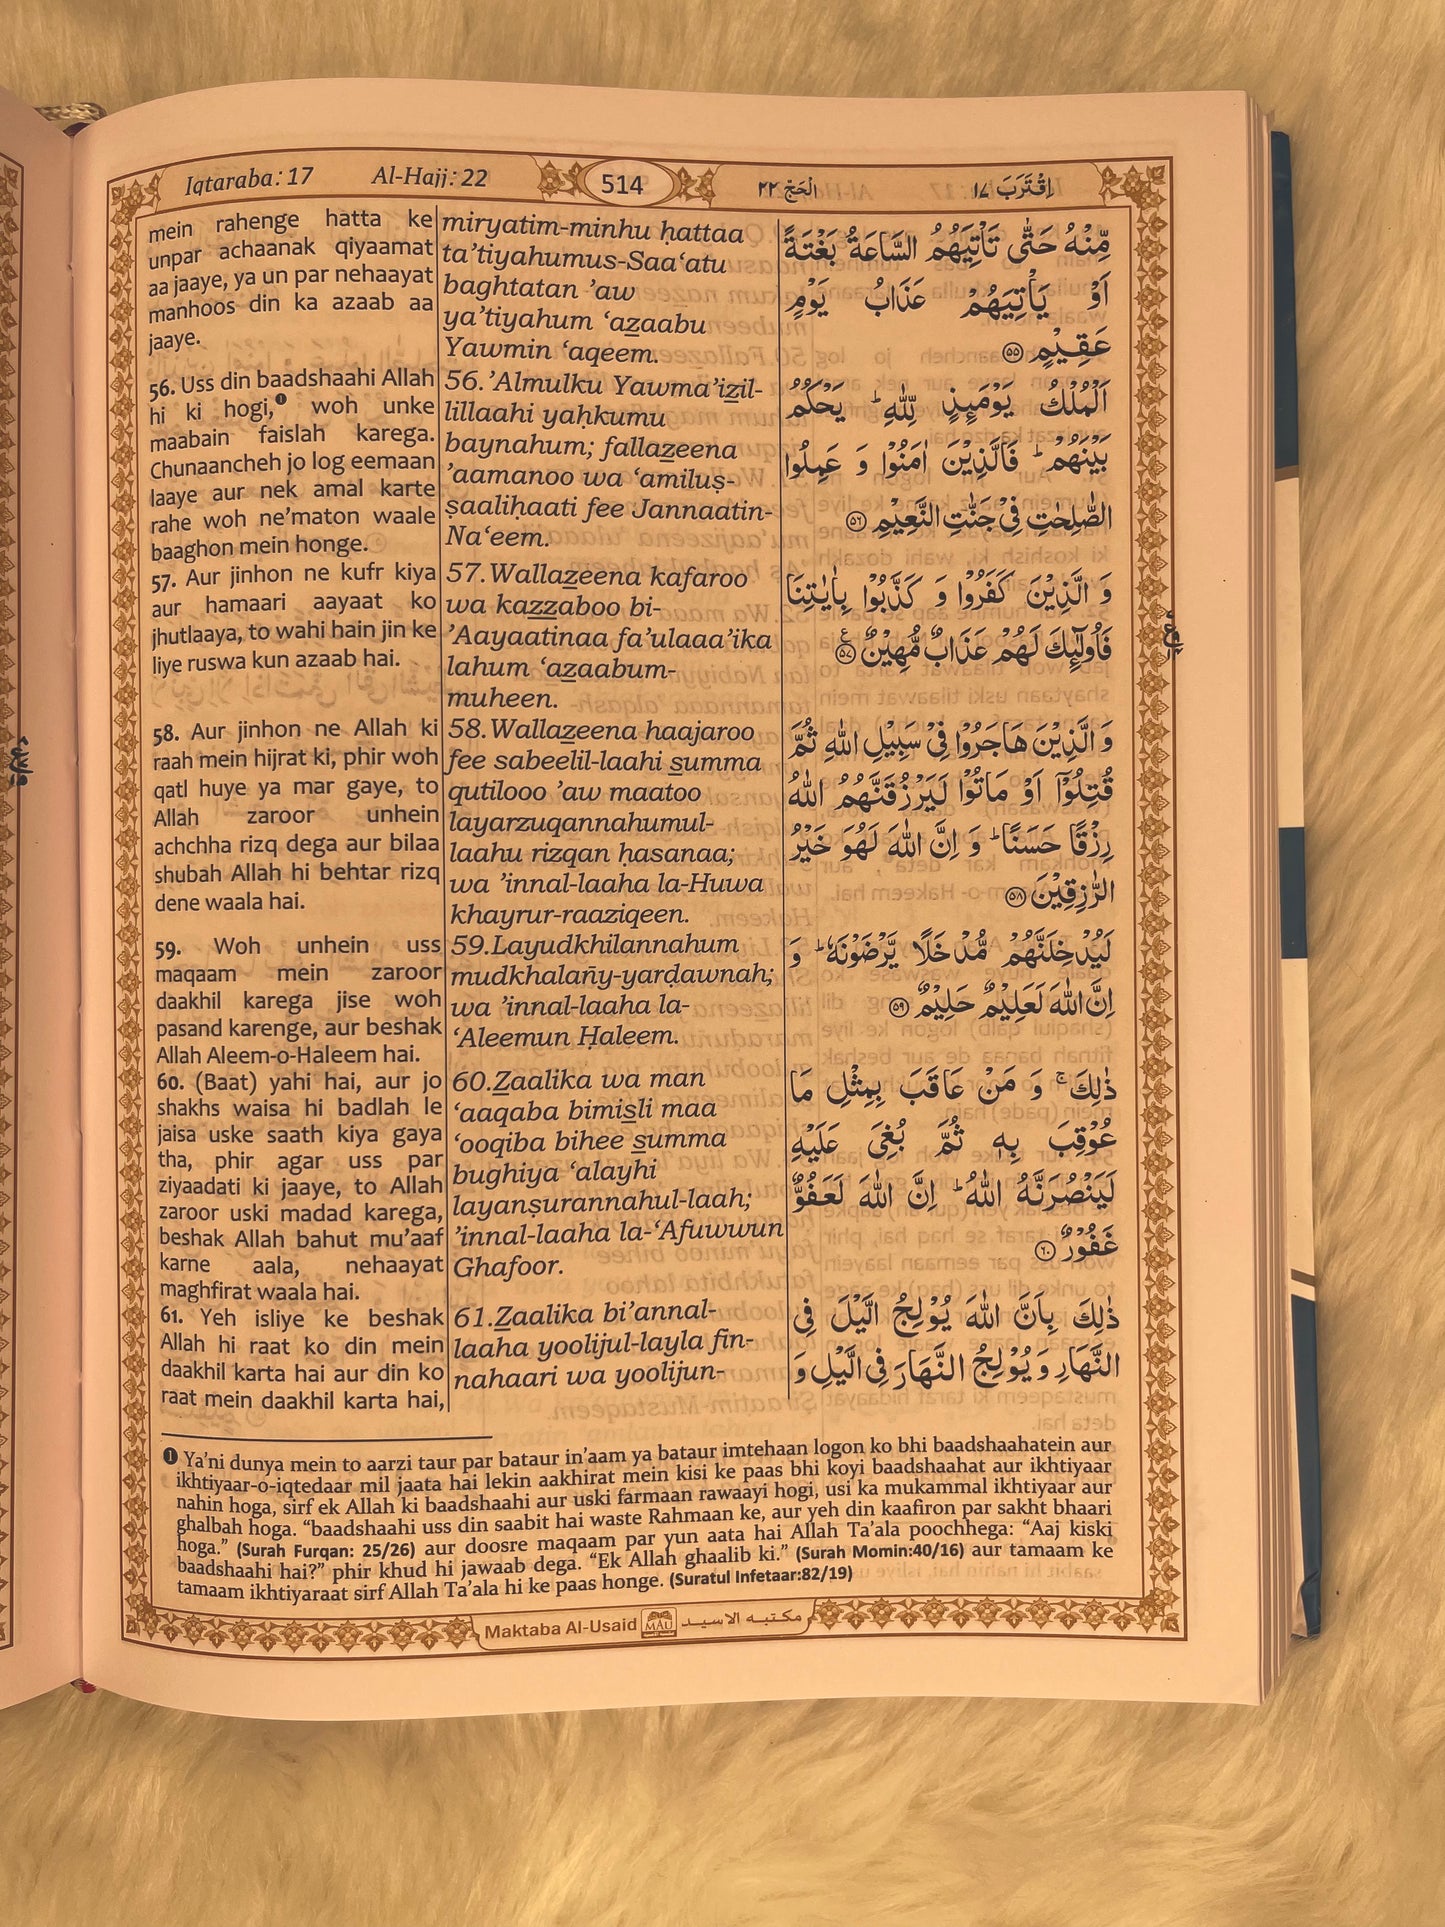 Iqtaraba: 17
Al-Hajj: 22
514
الْحَجّ ٢٢
اِقْتَرَبَ ١٧
mein rahenge hatta ke
unpar achaanak qiyaamat
aa jaaye, ya un par nehaayat
manhoos din ka azaab aa
jaaye.
56. Uss din baadshaahi Allah
hi ki hogi,❶ woh unke
maabain faislah karega.
Chunaancheh jo log eemaan
laaye aur nek amal karte
rahe woh ne’maton waale
baaghon mein honge.
57. Aur jinhon ne kufr kiya
aur hamaari aayaat ko
jhutlaaya, to wahi hain jin ke
liye ruswa kun azaab hai.
58. Aur jinhon ne Allah ki
raah mein hijrat ki, phir woh
qatl huye ya mar gaye, to
Allah zaroor unhein
achchha rizq dega aur bilaa
shubah Allah hi behtar rizq
dene waala hai.
59. Woh unhein uss
maqaam mein zaroor
daakhil karega jise woh
pasand karenge, aur beshak
Allah Aleem-o-Haleem hai.
60. (Baat) yahi hai, aur jo
shakhs waisa hi badlah le
jaisa uske saath kiya gaya
tha, phir agar uss par
ziyaadati ki jaaye, to Allah
zaroor uski madad karega,
beshak Allah bahut mu’aaf
karne aala, nehaayat
maghfirat waala hai.
61. Yeh isliye ke beshak
Allah hi raat ko din mein
daakhil karta hai aur din ko
raat mein daakhil karta hai,
miryatim-minhu ḥattaa
ta’tiyahumus-Saa‘atu
baghtatan ’aw
ya’tiyahum ‘az̲aabu
Yawmin ‘aqeem.
56.’Almulku Yawma’iz̲il-
lillaahi yaḥkumu
baynahum; fallaz̲eena
’aamanoo wa ‘amiluṣ-
ṣaaliḥaati fee Jannaatin-
Na‘eem.
57.Wallaz̲eena kafaroo
wa kaz̲z̲aboo bi-
’Aayaatinaa fa’ulaaa’ika
lahum ‘az̲aabum-
muheen.
58.Wallaz̲eena haajaroo
fee sabeelil-laahi s̲umma
qutilooo ’aw maatoo
layarzuqannahumul-
laahu rizqan ḥasanaa;
wa ’innal-laaha la-Huwa
khayrur-raaziqeen.
59.Layudkhilannahum
mudkhalañy-yarḍawnah;
wa ’innal-laaha la-
‘Aleemun Ḥaleem.
60.Z̲aalika wa man
‘aaqaba bimis̲li maa
‘ooqiba bihee s̲umma
bughiya ‘alayhi
layanṣurannahul-laah;
’innal-laaha la-‘Afuwwun
Ghafoor.
61.Z̲aalika bi’annal-
laaha yoolijul-layla fin-
nahaari wa yoolijun-
مِّنْهُ حَتّٰى تَاْتِيَهُمُ السَّاعَةُ بَغْتَةً
اَوْ يَاْتِيَهُمْ عَذَابُ يَوْمٍ
عَقِيْمٍ ۝٥٥
اَلْمُلْكُ يَوْمَىِٕذٍ لِّلّٰهِ ؕ يَحْكُمُ
بَيْنَهُمْ ؕ فَالَّذِيْنَ اٰمَنُوْا وَ عَمِلُوا
الصّٰلِحٰتِ فِيْ جَنّٰتِ النَّعِيْمِ ۝٥٦
وَ الَّذِيْنَ كَفَرُوْا وَ كَذَّبُوْا بِاٰيٰتِنَا
فَاُولٰٓىِٕكَ لَهُمْ عَذَابٌ مُّهِيْنٌ ۝٥٧ ع
وَ الَّذِيْنَ هَاجَرُوْا فِيْ سَبِيْلِ اللّٰهِ ثُمَّ
قُتِلُوْۤا اَوْ مَاتُوْا لَيَرْزُقَنَّهُمُ اللّٰهُ
رِزْقًا حَسَنًا ؕ وَ اِنَّ اللّٰهَ لَهُوَ خَيْرُ
الرّٰزِقِيْنَ ۝٥٨
لَيُدْخِلَنَّهُمْ مُّدْخَلًا يَّرْضَوْنَهٗ ؕ وَ
اِنَّ اللّٰهَ لَعَلِيْمٌ حَلِيْمٌ ۝٥٩
ذٰلِكَ ۚ وَ مَنْ عَاقَبَ بِمِثْلِ مَا
عُوْقِبَ بِهٖ ثُمَّ بُغِيَ عَلَيْهِ
لَيَنْصُرَنَّهُ اللّٰهُ ؕ اِنَّ اللّٰهَ لَعَفُوٌّ
غَفُوْرٌ ۝٦٠
ذٰلِكَ بِاَنَّ اللّٰهَ يُوْلِجُ الَّيْلَ فِي
النَّهَارِ وَ يُوْلِجُ النَّهَارَ فِي الَّيْلِ وَ
❶ Ya’ni dunya mein to aarzi taur par bataur in’aam ya bataur imtehaan logon ko bhi baadshaahatein aur
ikhtiyaar-o-iqtedaar mil jaata hai lekin aakhirat mein kisi ke paas bhi koyi baadshaahat aur ikhtiyaar
nahin hoga, sirf ek Allah ki baadshaahi aur uski farmaan rawaayi hogi, usi ka mukammal ikhtiyaar aur
ghalbah hoga. “baadshaahi uss din saabit hai waste Rahmaan ke, aur yeh din kaafiron par sakht bhaari
hoga.” (Surah Furqan: 25/26) aur doosre maqaam par yun aata hai Allah Ta’ala poochhega: “Aaj kiski
baadshaahi hai?” phir khud hi jawaab dega. “Ek Allah ghaalib ki.” (Surah Momin:40/16) aur tamaam ke
tamaam ikhtiyaraat sirf Allah Ta’ala hi ke paas honge. (Suratul Infetaar:82/19)
Maktaba Al-Usaid MAU مكتبه الاسيد